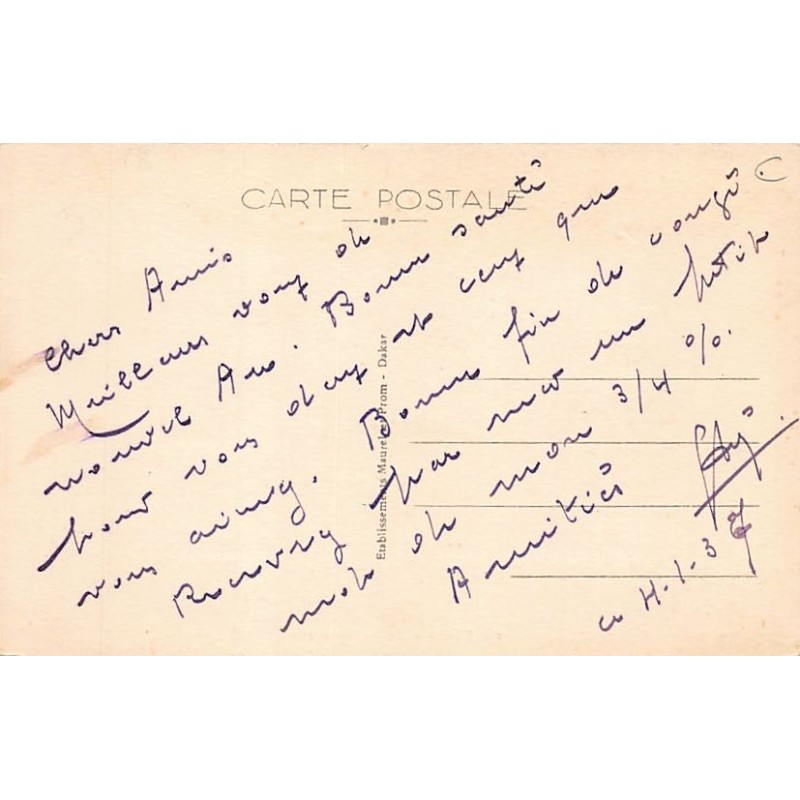 CARTE POSTALE
Chers Amis
Meilleurs vœux de
nouvel An. Bonne santé
pour vous deux et ceux que
vous aimez. Bonne fin de congé
Recevez par un petit
mot de mon 3/4 %.
Amitiés
Etablissements Maurel et Prom - Dakar